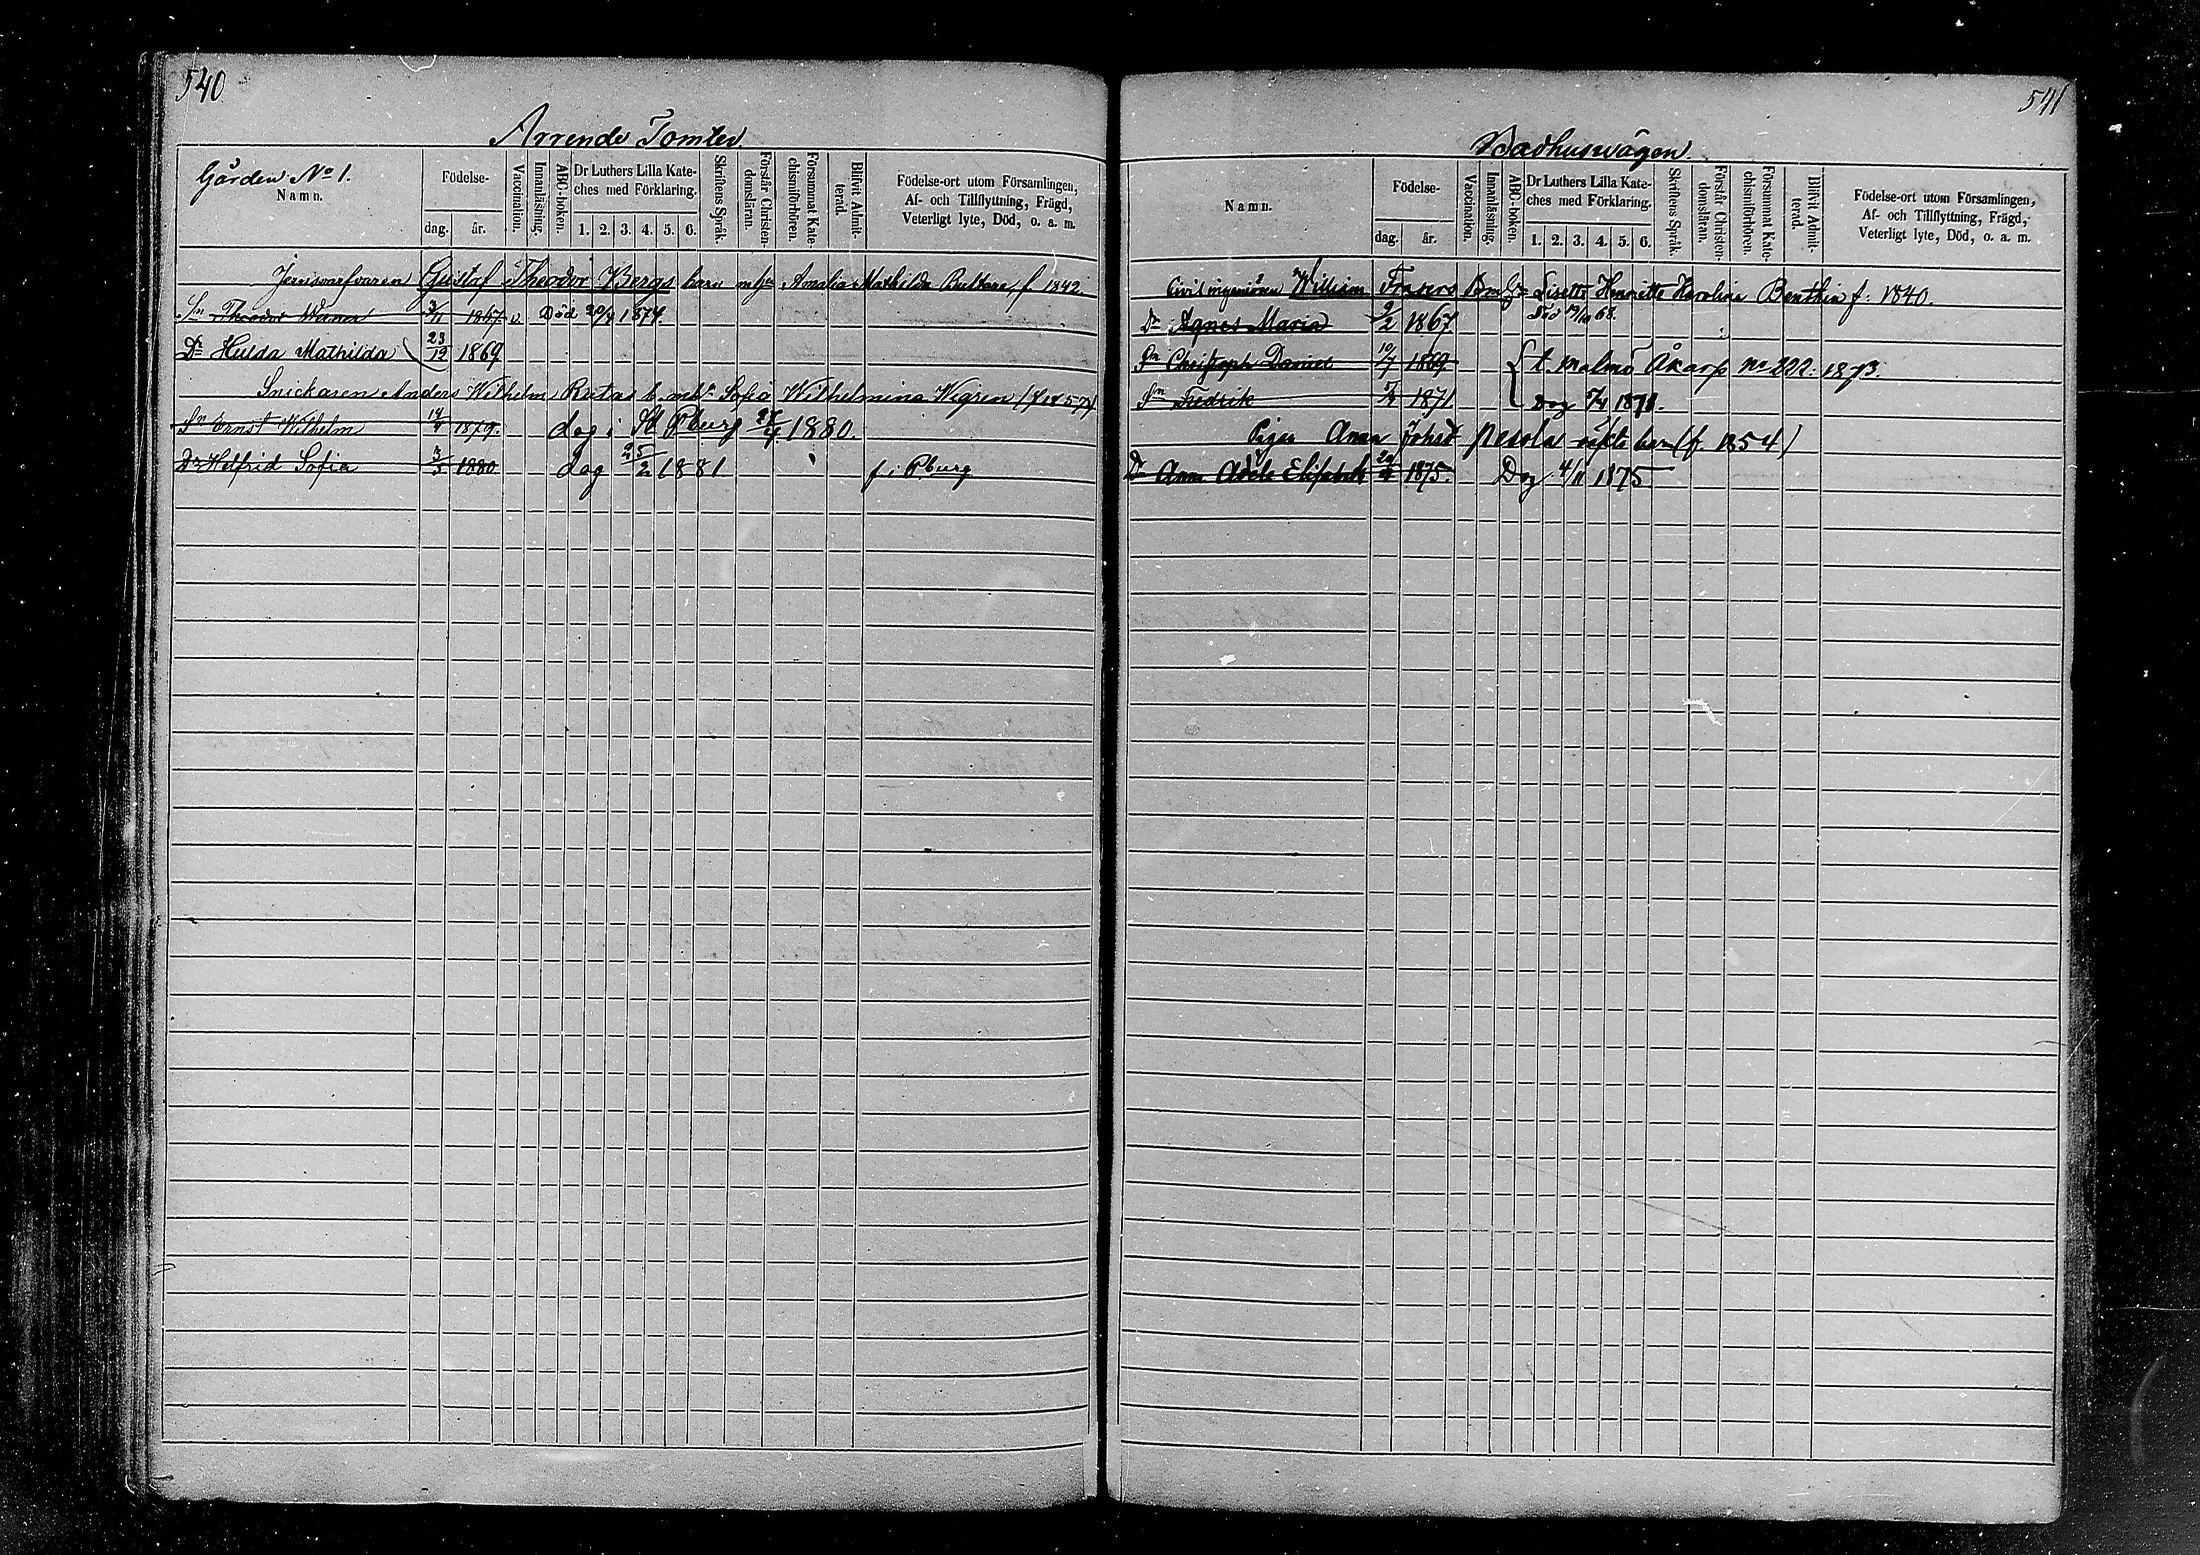 540
Arrende Tomter
Gården No 1.
Namn.
Födelse-
dag.
år.
Vaccination.
Innanläsning.
ABC-boken.
Dr Luthers Lilla Kate-
ches med Förklaring.
1. 2. 3. 4. 5. 6.
Skriftens Språk.
Förstår Christen-
domsläran.
Försummat Kate-
chismiförhören.
Blifvit Admit-
terad.
Födelse-ort utom Församlingen,
Af- och Tillflyttning, Frägd,
Veterligt lyte, Död, o. a. m.
Gustaf Theodor Bergs barn m hu Amalia Mathilda f 1842.
Sn Theodor Werner 3/11 1867 v Död 20/8 1874.
Dr Hulda Mathilda 23/12 1869
Snickaren Anders Wilhelm b. m h Sofia Wilhelmina
Sn Ernst Wilhelm 1879. dog i St Pburg 1880.
Dr Helfrid Sofia 3/3 1880 dog 25/2 1881. f. i Pburg
541
Badhuswägen.
Namn.
Födelse-
dag.
år.
Vaccination.
Innanläsning.
ABC-boken.
Dr Luthers Lilla Kate-
ches med Förklaring.
1. 2. 3. 4. 5. 6.
Skriftens Språk.
Förstår Christen-
domsläran.
Försummat Kate-
chismiförhören.
Blifvit Admit-
terad.
Födelse-ort utom Församlingen,
Af- och Tillflyttning, Frägd,
Veterligt lyte, Död, o. a. m.
Civilingeniören William Frasers Lisette Henriette Karolina Benthin f. 1840.
Dr Agnes Maria 5/2 1867 Död 19/10 68.
Sn Christoph Daniel 10/7 1869 t. Malmö Åkarp No 222. 1873.
Sn Fredrik 1871 Dog 1871.
Pigan Anna Johsd oäkta barn (f. 1854)
Dr Anna Adele Elisabeth 1875. Dog 4/11 1875